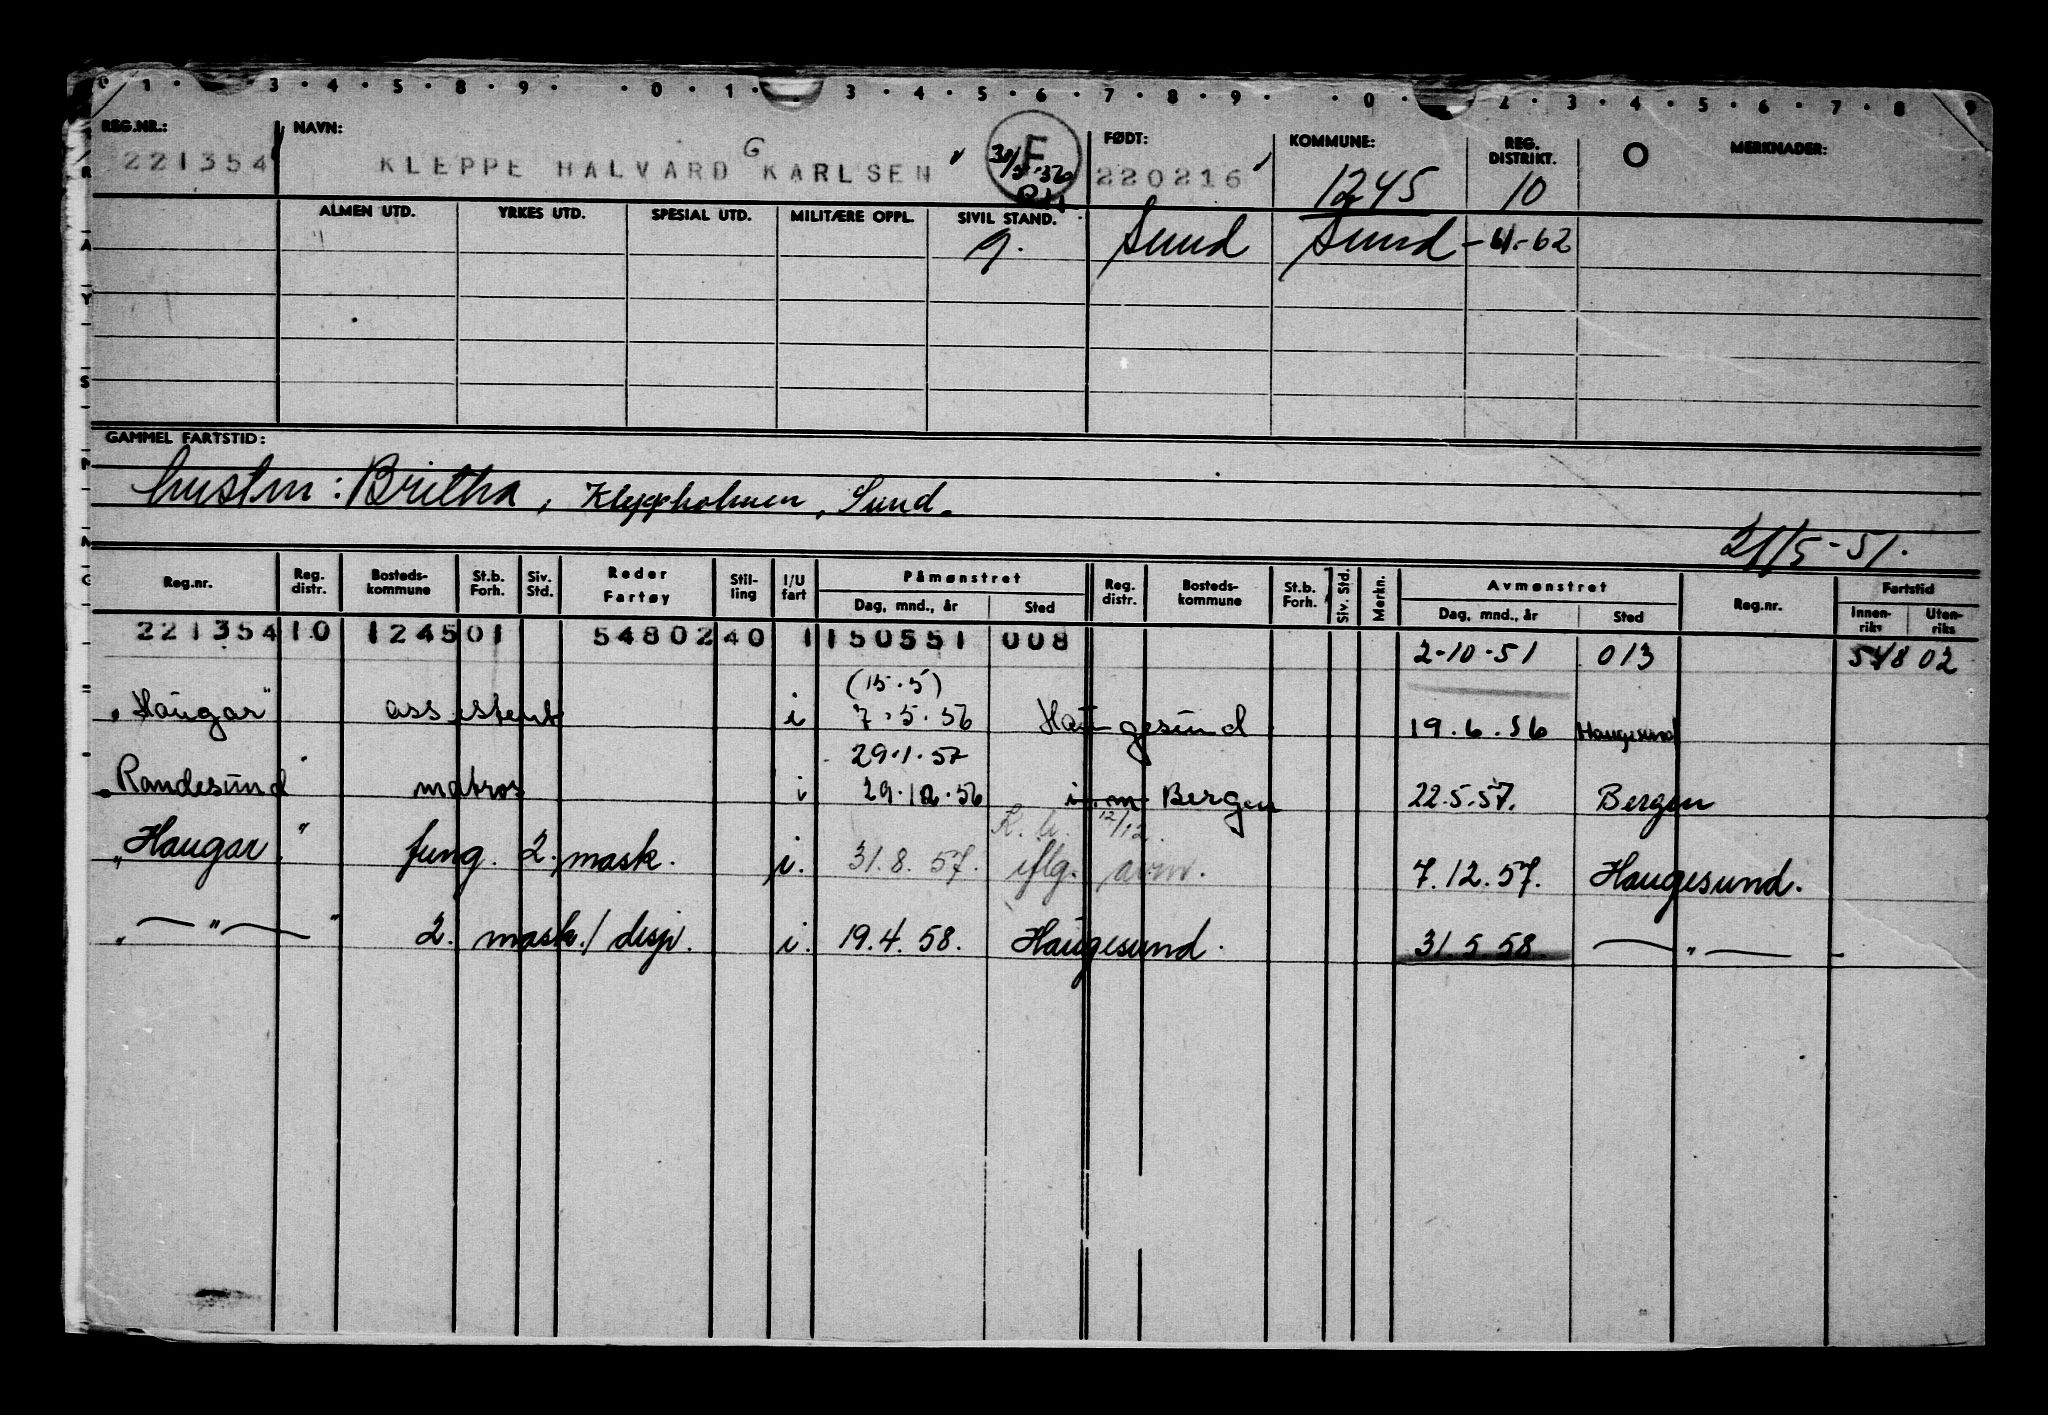 1 · 3 · 4 · 5 · 8 · 9 · · 0 · 1 · 3 · 4 · 5 · 6 · 7 · 8 · 9 · · 0 · 2 · 3 · 4 · 5 · 6 · 7 · 8 9
REG.NR.: NAVN: F FØDT: KOMMUNE: REG. DISTRIKT. O MERKNADER:
221354 KLEPPE HALVARD G KARLSEN 30/5-56 220216 1245 10
ALMEN UTD. YRKES UTD. SPESIAL UTD. MILITÆRE OPPL. SIVIL STAND.
g. Sund Sund -61-62
GAMMEL FARTSTID:
hustru: Britha, Kleppholmen, Sund.
21/5-51.
Reg.nr. Reg. distr. Bosteds-kommune St.b. Forh. Siv. Std. Reder Fartøy Stil-ling I/U fart Påmønstret Reg. distr. Bosteds-kommune St.b. Forh. Siv. Std. Merkn. Avmønstret Reg.nr. Fartstid
Dag, mnd., år Sted Dag, mnd., år Sted Innen-riks Uten-riks
221354 10 1245 01 54802 40 1 150551 008
2-10-51 013 548 02
(15.5)
"Haugar" assistent i 7.5.56 Haugesund 19.6.56 Haugesund
29.1.57
"Randesund" matros i 29.12.56 i.m Bergen 22.5.57. Bergen
12/12.
"Haugar" fung. 2. mask. i. 31.8.57. iflg. avm. 7.12.57. Haugesund.
" — " — " 2. mask./disp. i. 19.4.58. Haugesund. 31.5.58 — " —